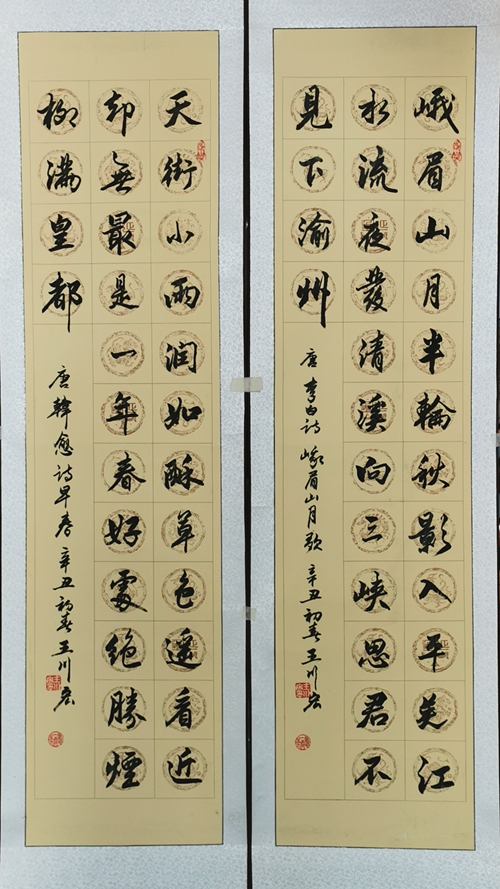 峨眉山月半輪秋影入平羌江
水流夜發清溪向三峡思君不
見下渝州
唐李白詩峨眉山月歌辛丑初春王川宏
天街小雨润如酥草色遥看近
却無最是一年春好處絶勝煙
柳滿皇都
唐韓愈詩早春辛丑初春王川宏